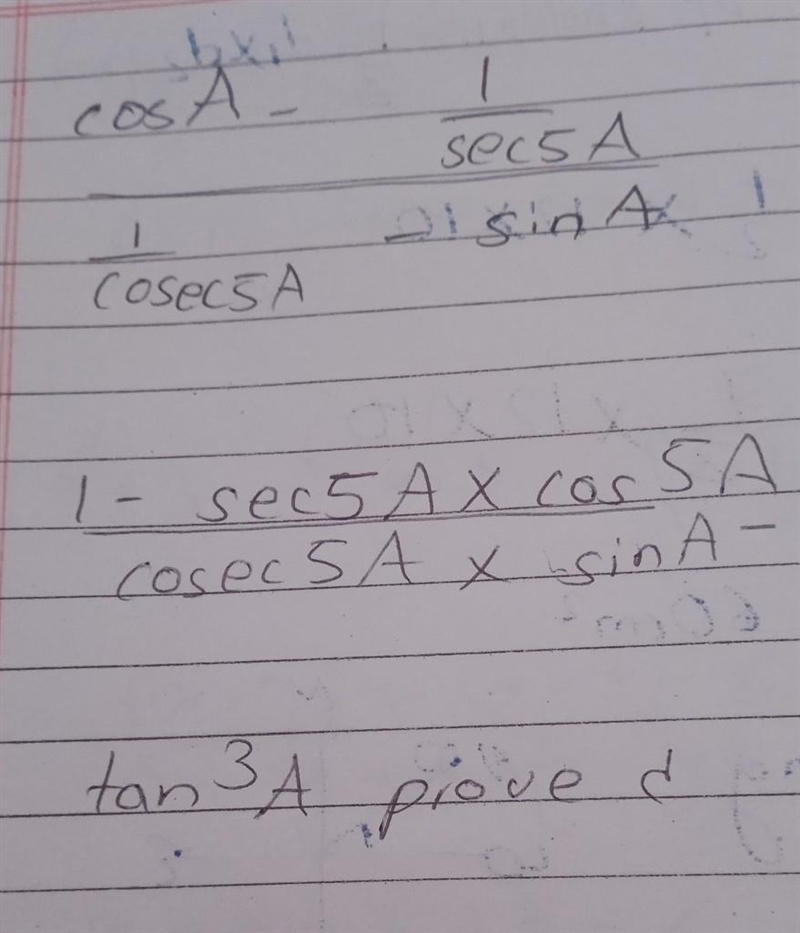 cosA - 1
sec5A
1 - sinA
cosec5A
1 - sec5A x cos5A
cosec5A x sinA -
tan³A proved